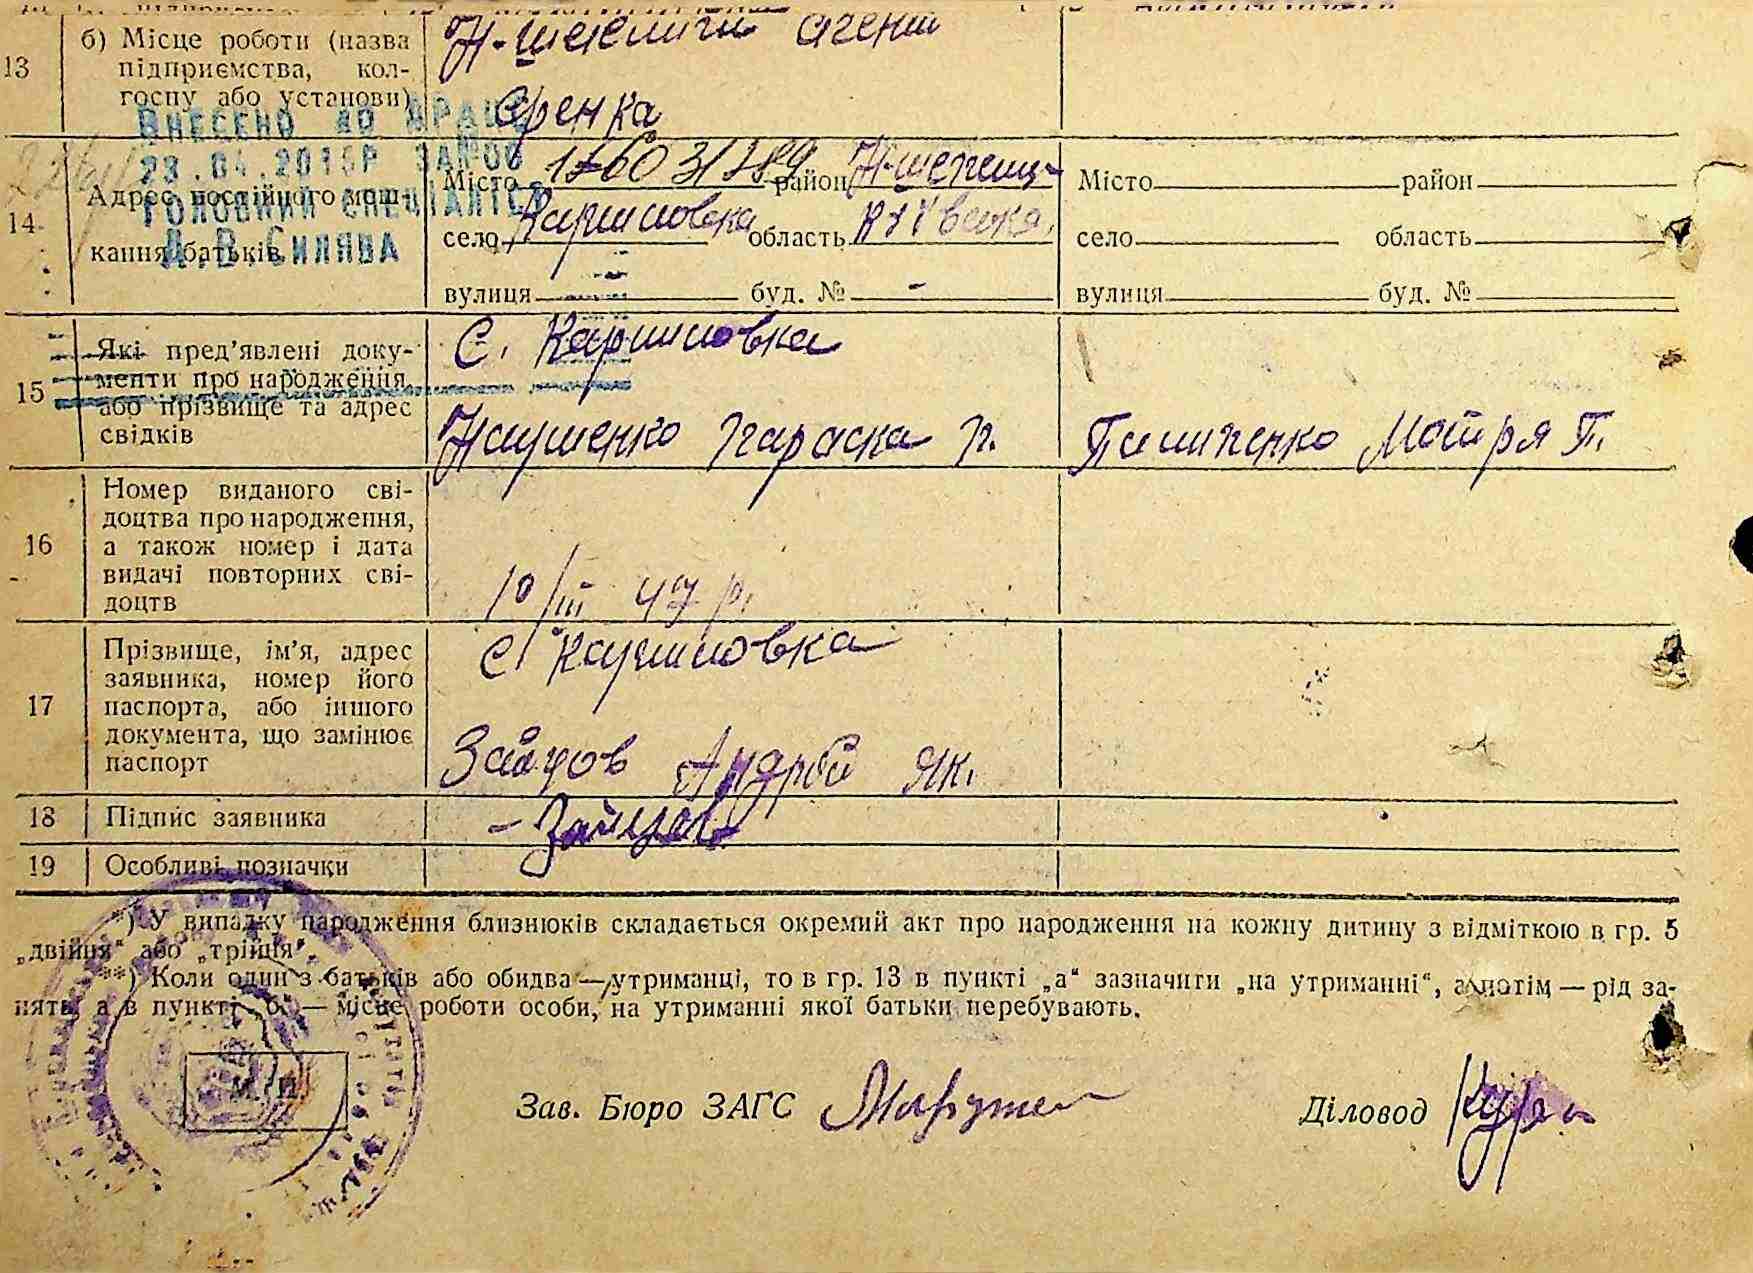 13
б) Місце роботи (назва
підприємства, кол-
госпу або установи)
ВНЕСЕНО ДО ДРАЦС
23.04.2015Р ЗА№00
ГОЛОВНИЙ СПЕЦІАЛІСТ
Д.В.СИЛЯВА
14
Адрес постійного меш-
кання батьків
Місто район
село область
вулиця буд. № -
Місто район
село область
вулиця буд. №
15
Які пред'явлені доку-
менти про народження
або прізвище та адрес
свідків
С. Каришовка
Параска П. Пилипенко Мотря П.
16
Номер виданого сві-
доцтва про народження,
а також номер і дата
видачі повторних сві-
доцтв
10/III 47 р.
17
Прізвище, ім'я, адрес
заявника, номер його
паспорта, або іншого
документа, що замінює
паспорт
С. Каришовка
Зайцов Андрій Як.
18 Підпис заявника
- Зайцев
19 Особливі позначки
*) У випадку народження близнюків складається окремий акт про народження на кожну дитину з відміткою в гр. 5
„двійня“ або „трійня“.
**) Коли один з батьків або обидва — утриманці, то в гр. 13 в пункті „а“ зазначити „на утриманні“, а потім — рід за-
нять, а в пункті „б“ — місце роботи особи, на утриманні якої батьки перебувають.
М. П.
Зав. Бюро ЗАГС
Діловод